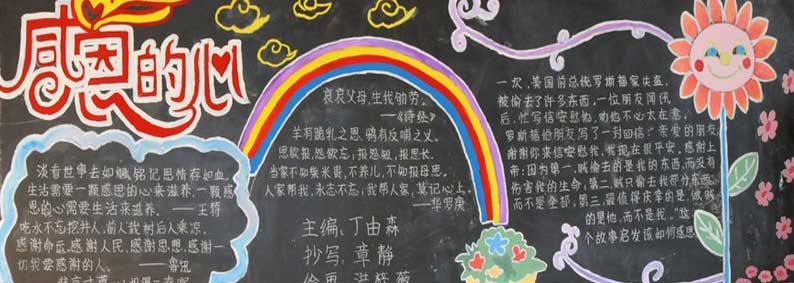 感恩的心
淡看世事去如烟,铭记恩情存如血。
生活需要一颗感恩的心来滋养,一颗感
恩的心需要生活来滋养。——王符
吃水不忘挖井人,前人栽树后人乘凉。
感谢命运,感谢人民,感谢思想,感谢一
切我要感谢的人。——鲁迅
哀哀父母,生我劬劳。
——《诗经》
羊有跪乳之恩,鸦有反哺之义。
恩欲报,怨欲忘;报怨短,报恩长。
当家不知柴米贵,不养儿,不知报母恩。
人家帮我,永志不忘;我帮人家,莫记心上。
——华罗庚
主编:丁由森
抄写:章静
绘画:洪
一次,美国前总统罗斯福家失盗,
被偷去了许多东西,一位朋友闻讯
后,忙写信安慰他,劝他不必太在意。
罗斯福给朋友写了一封回信:“亲爱的朋友,
谢谢你来信安慰我,我现在很平安,感谢上
帝:因为第一,贼偷去的是我的东西,而没有
伤害我的生命;第二,贼只偷去我部分东西,
而不是全部;第三,最值得庆幸的是,做贼
的是他,而不是我。”这
个故事启发该如何感恩